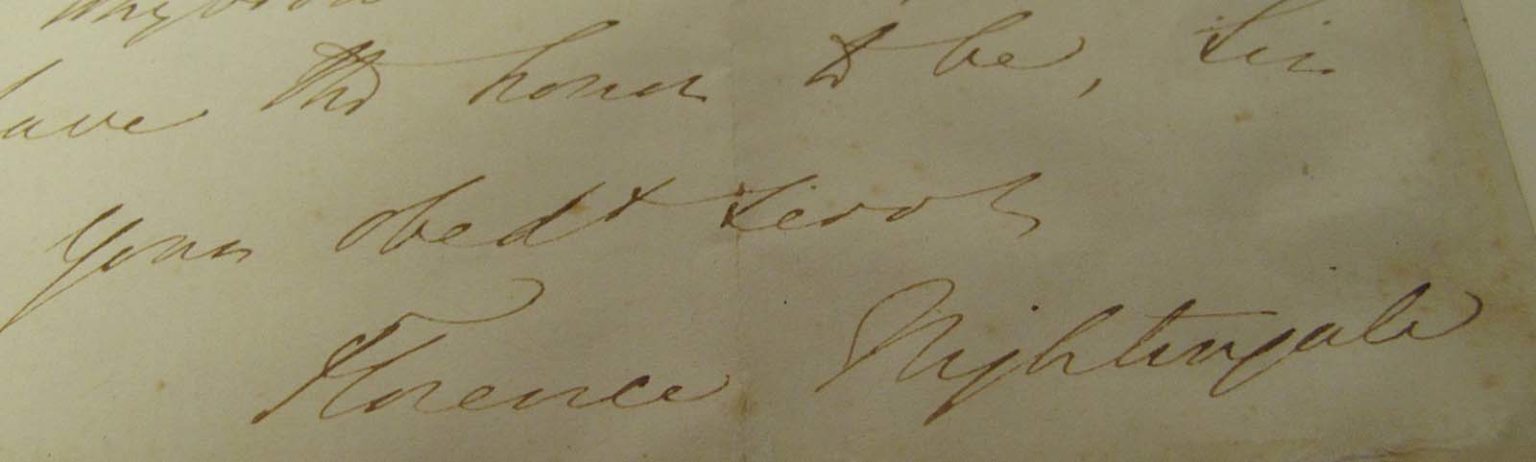 have the honor to be, Sir
Your obedt servt
Florence Nightingale